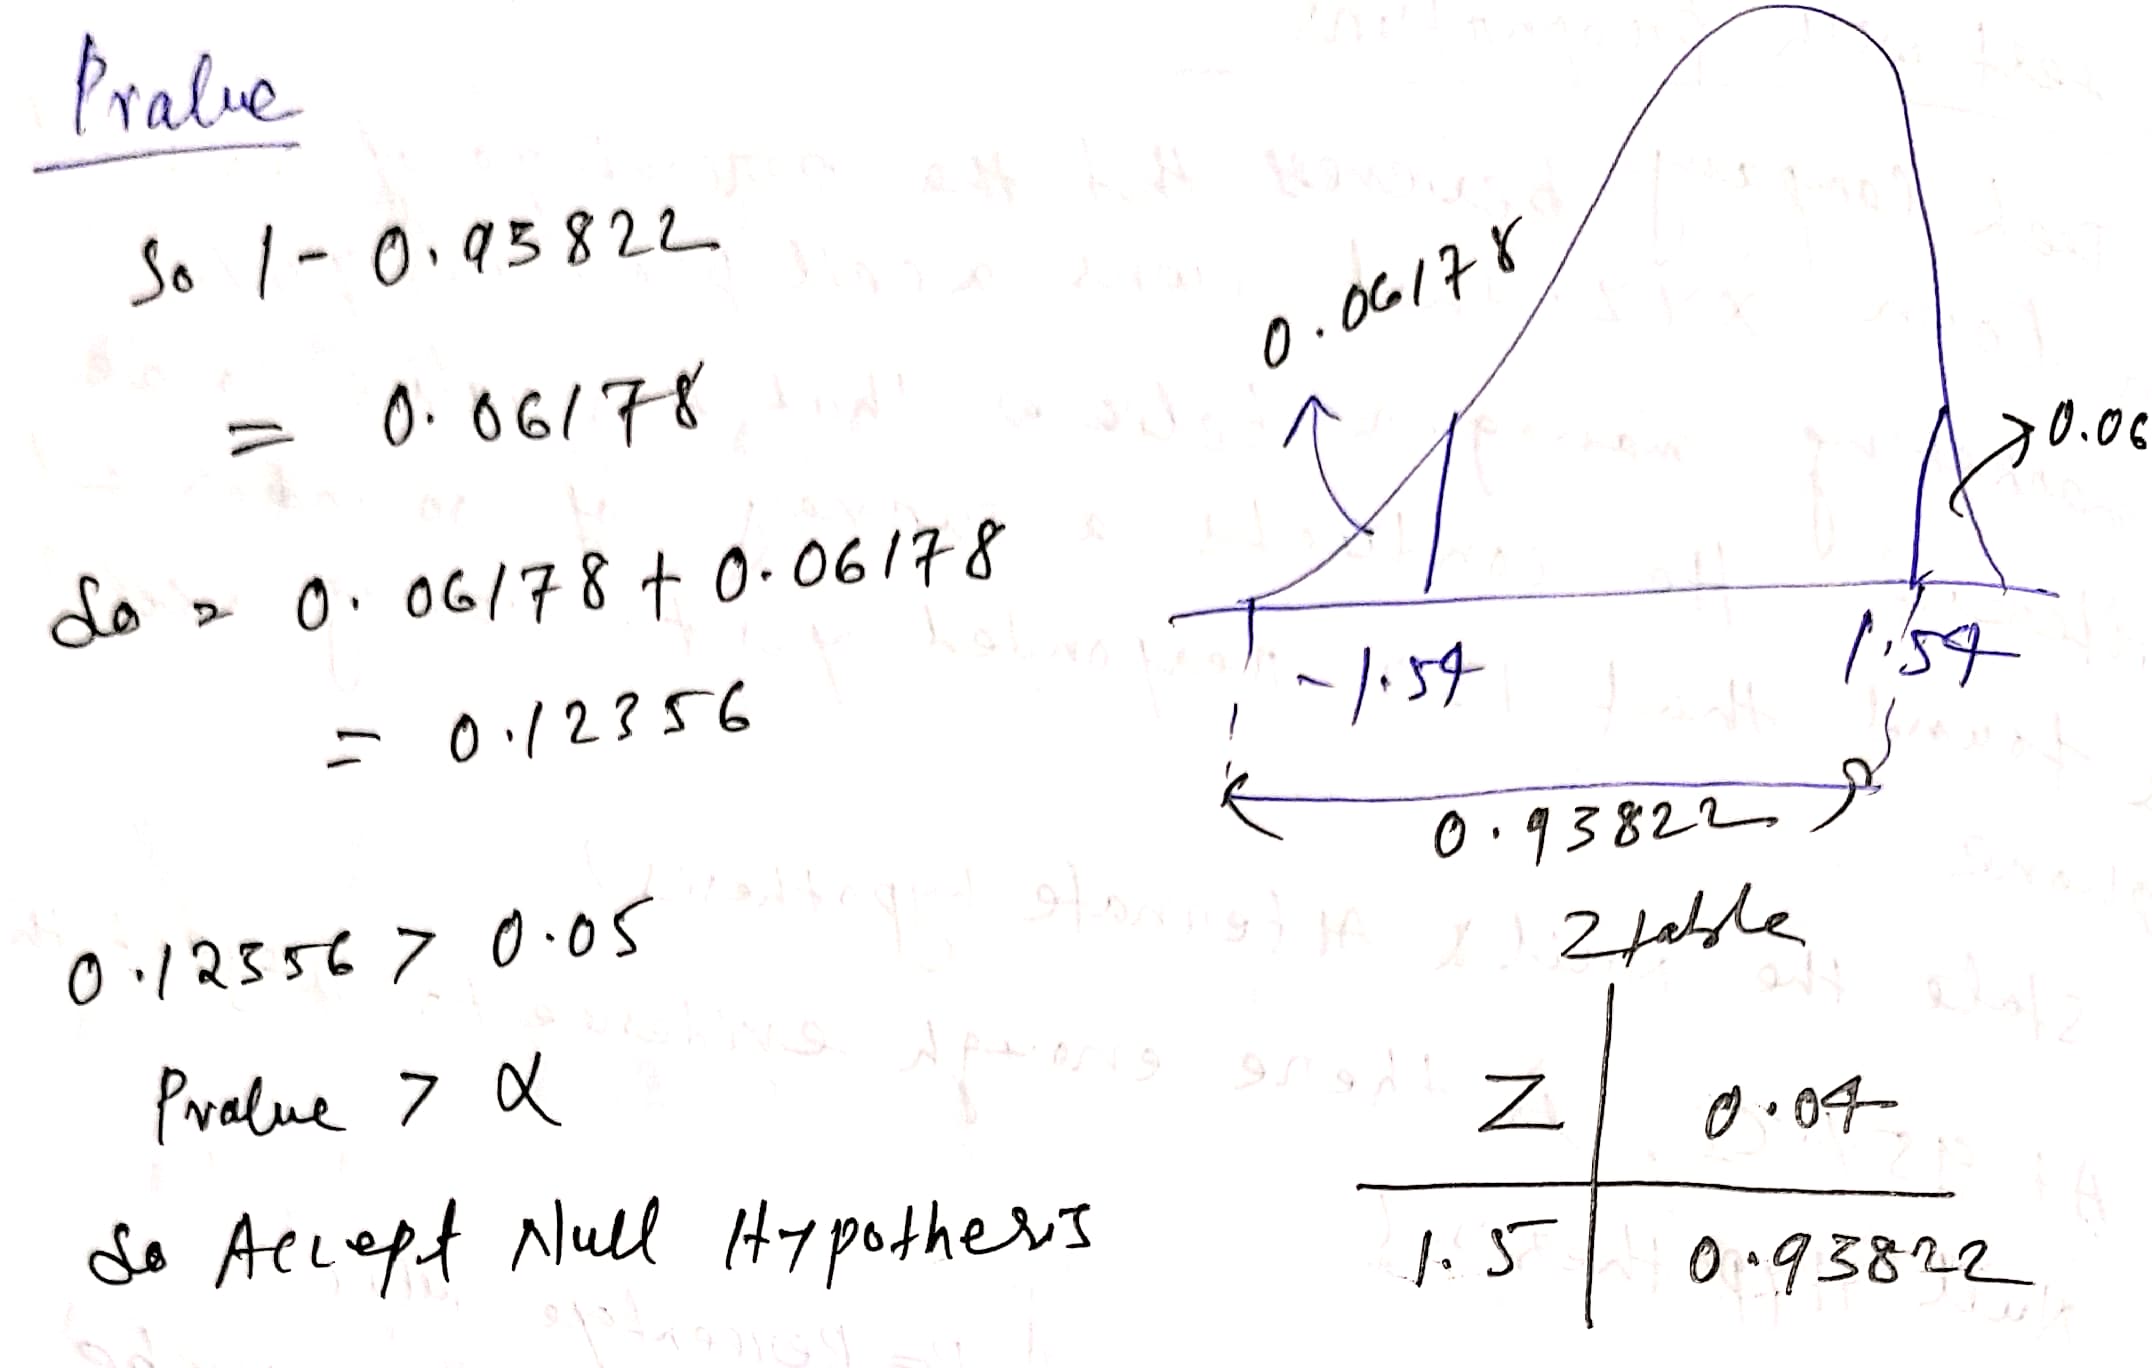 Pvalue
So 1 - 0.93822
= 0.06178
So = 0.06178 + 0.06178
= 0.12356
0.12356 > 0.05
Pvalue > α
So Accept Null Hypothesis
0.06178
0.06
-1.54
1.54
0.93822
Z table
Z 0.04
1.5 0.93822